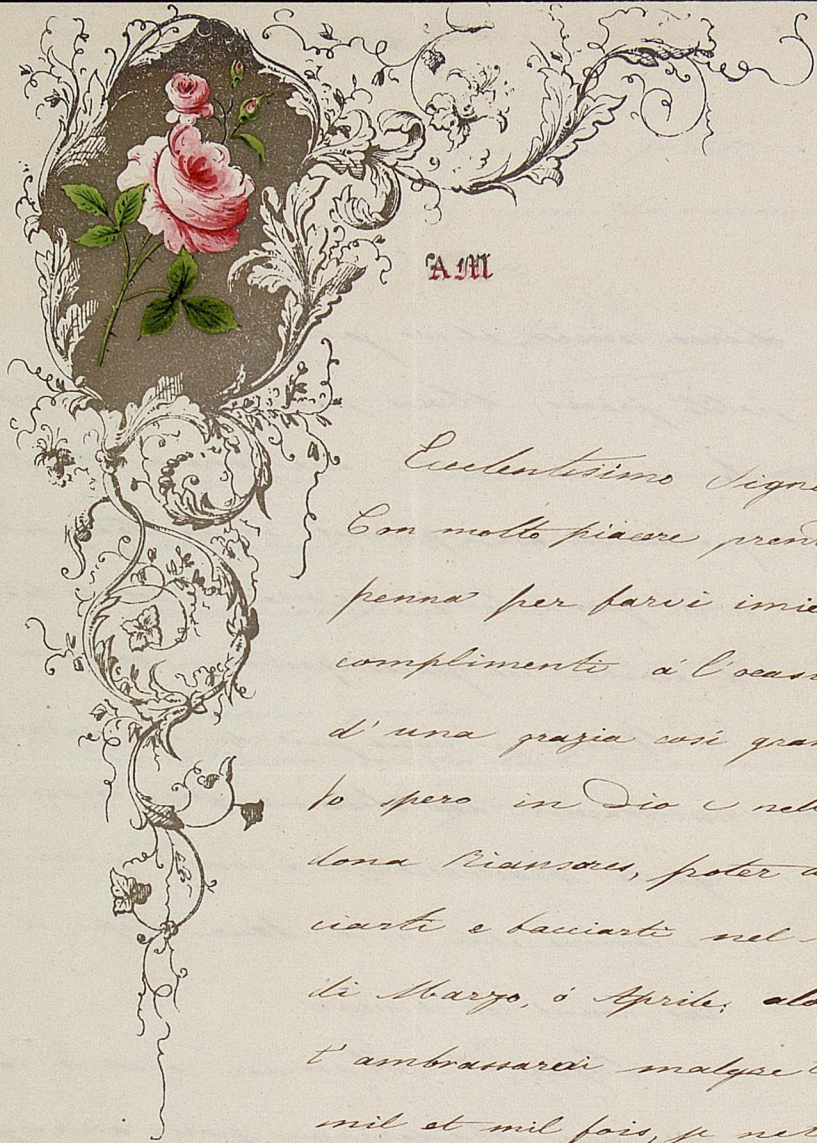 AM
Eccelentisimo Signo
Con molto piacere prend
penna per farvi imie
complimenti á l'ocas
d'una grazia cosi gran
Io spero in Dio e nel
dona Riansares, poter a
ciarti e bacciarti nel
di Marzo, ó Aprile, alo
t'ambrassarai malgre
mil et mil fois, je